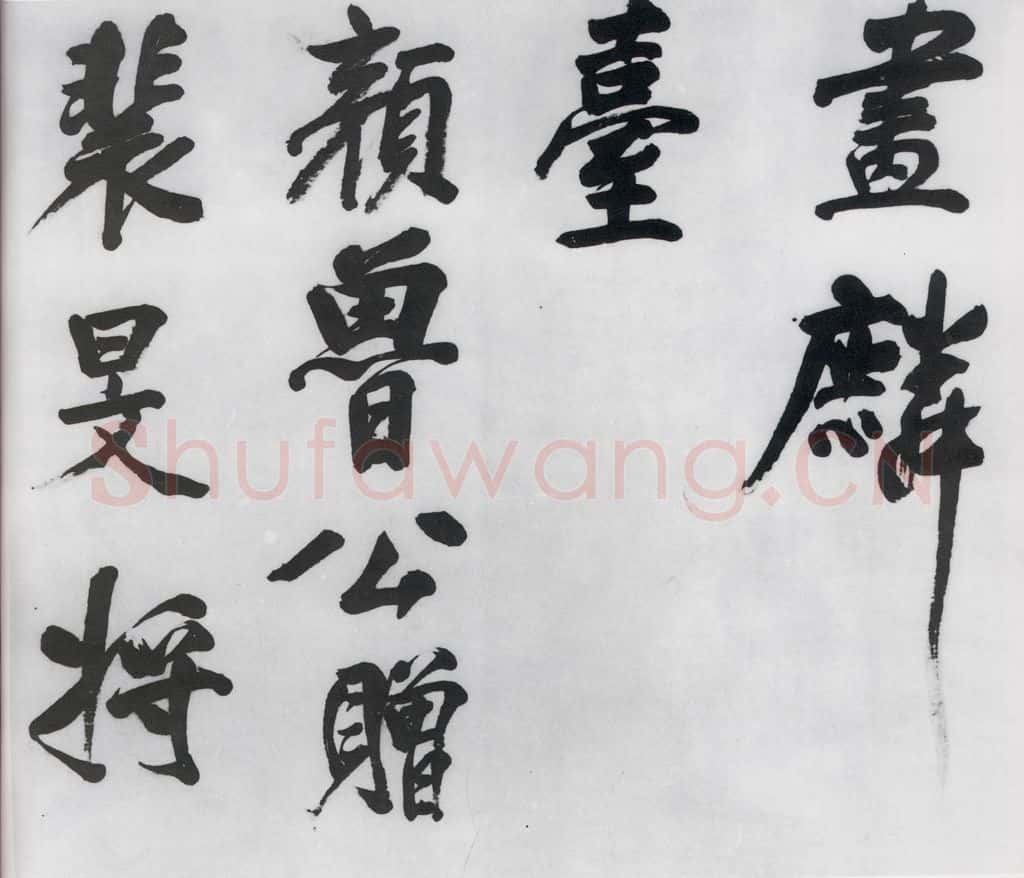 畫麟
臺
顏魯公贈
裴旻将
Shufawang.CN